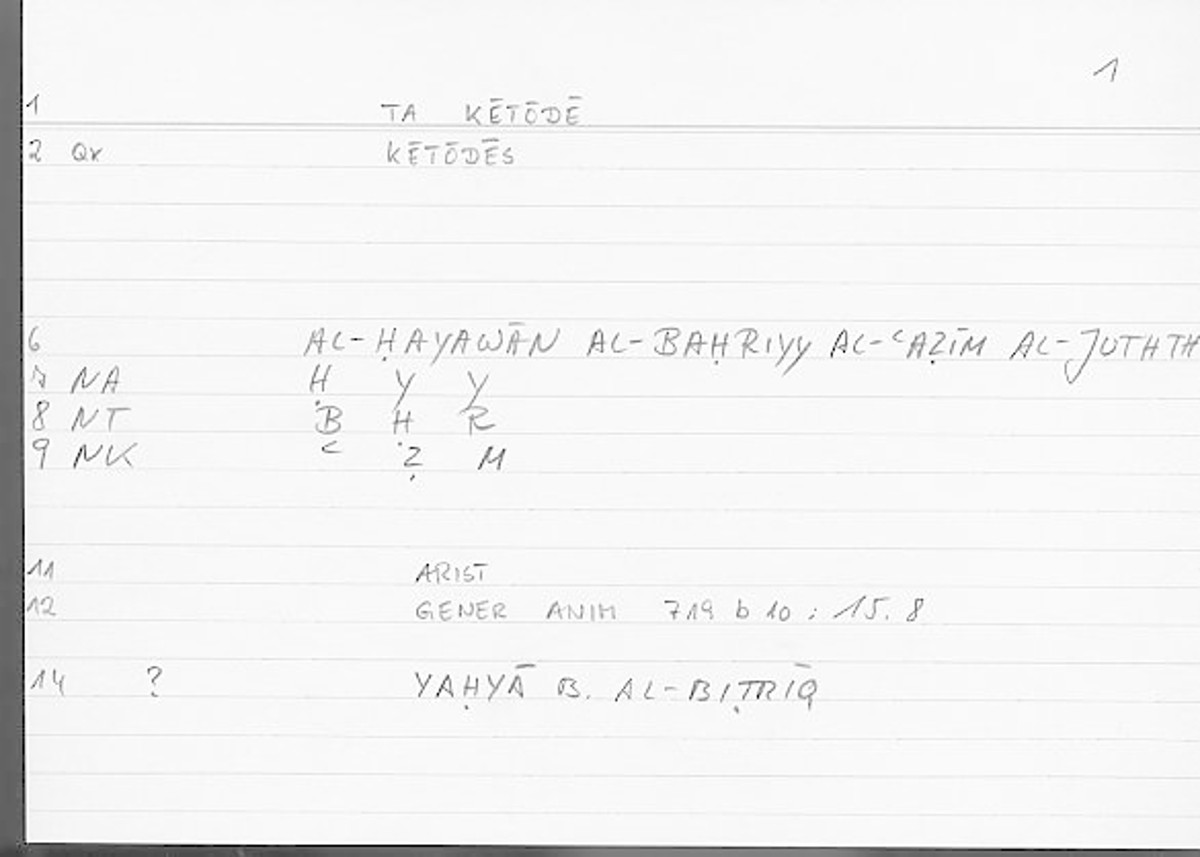 1
1 TA KĒTŌDĒ
2 Qx KĒTŌDĒS
6 AL-ḤAYAWĀN AL-BAḤRIYY AL-ʿAẒĪM AL-JUTHTH
7 NA Ḥ Y Y
8 NT B Ḥ R
9 NK ʿ Ẓ M
11 ARIST
12 GENER ANIM 719 b 10 ; 15.8
14 ? YAḤYĀ B. AL-BIṬRĪQ